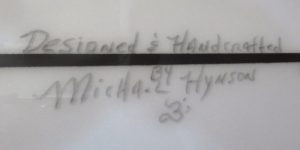 Designed & Handcrafted
By
Micha.L Hynson